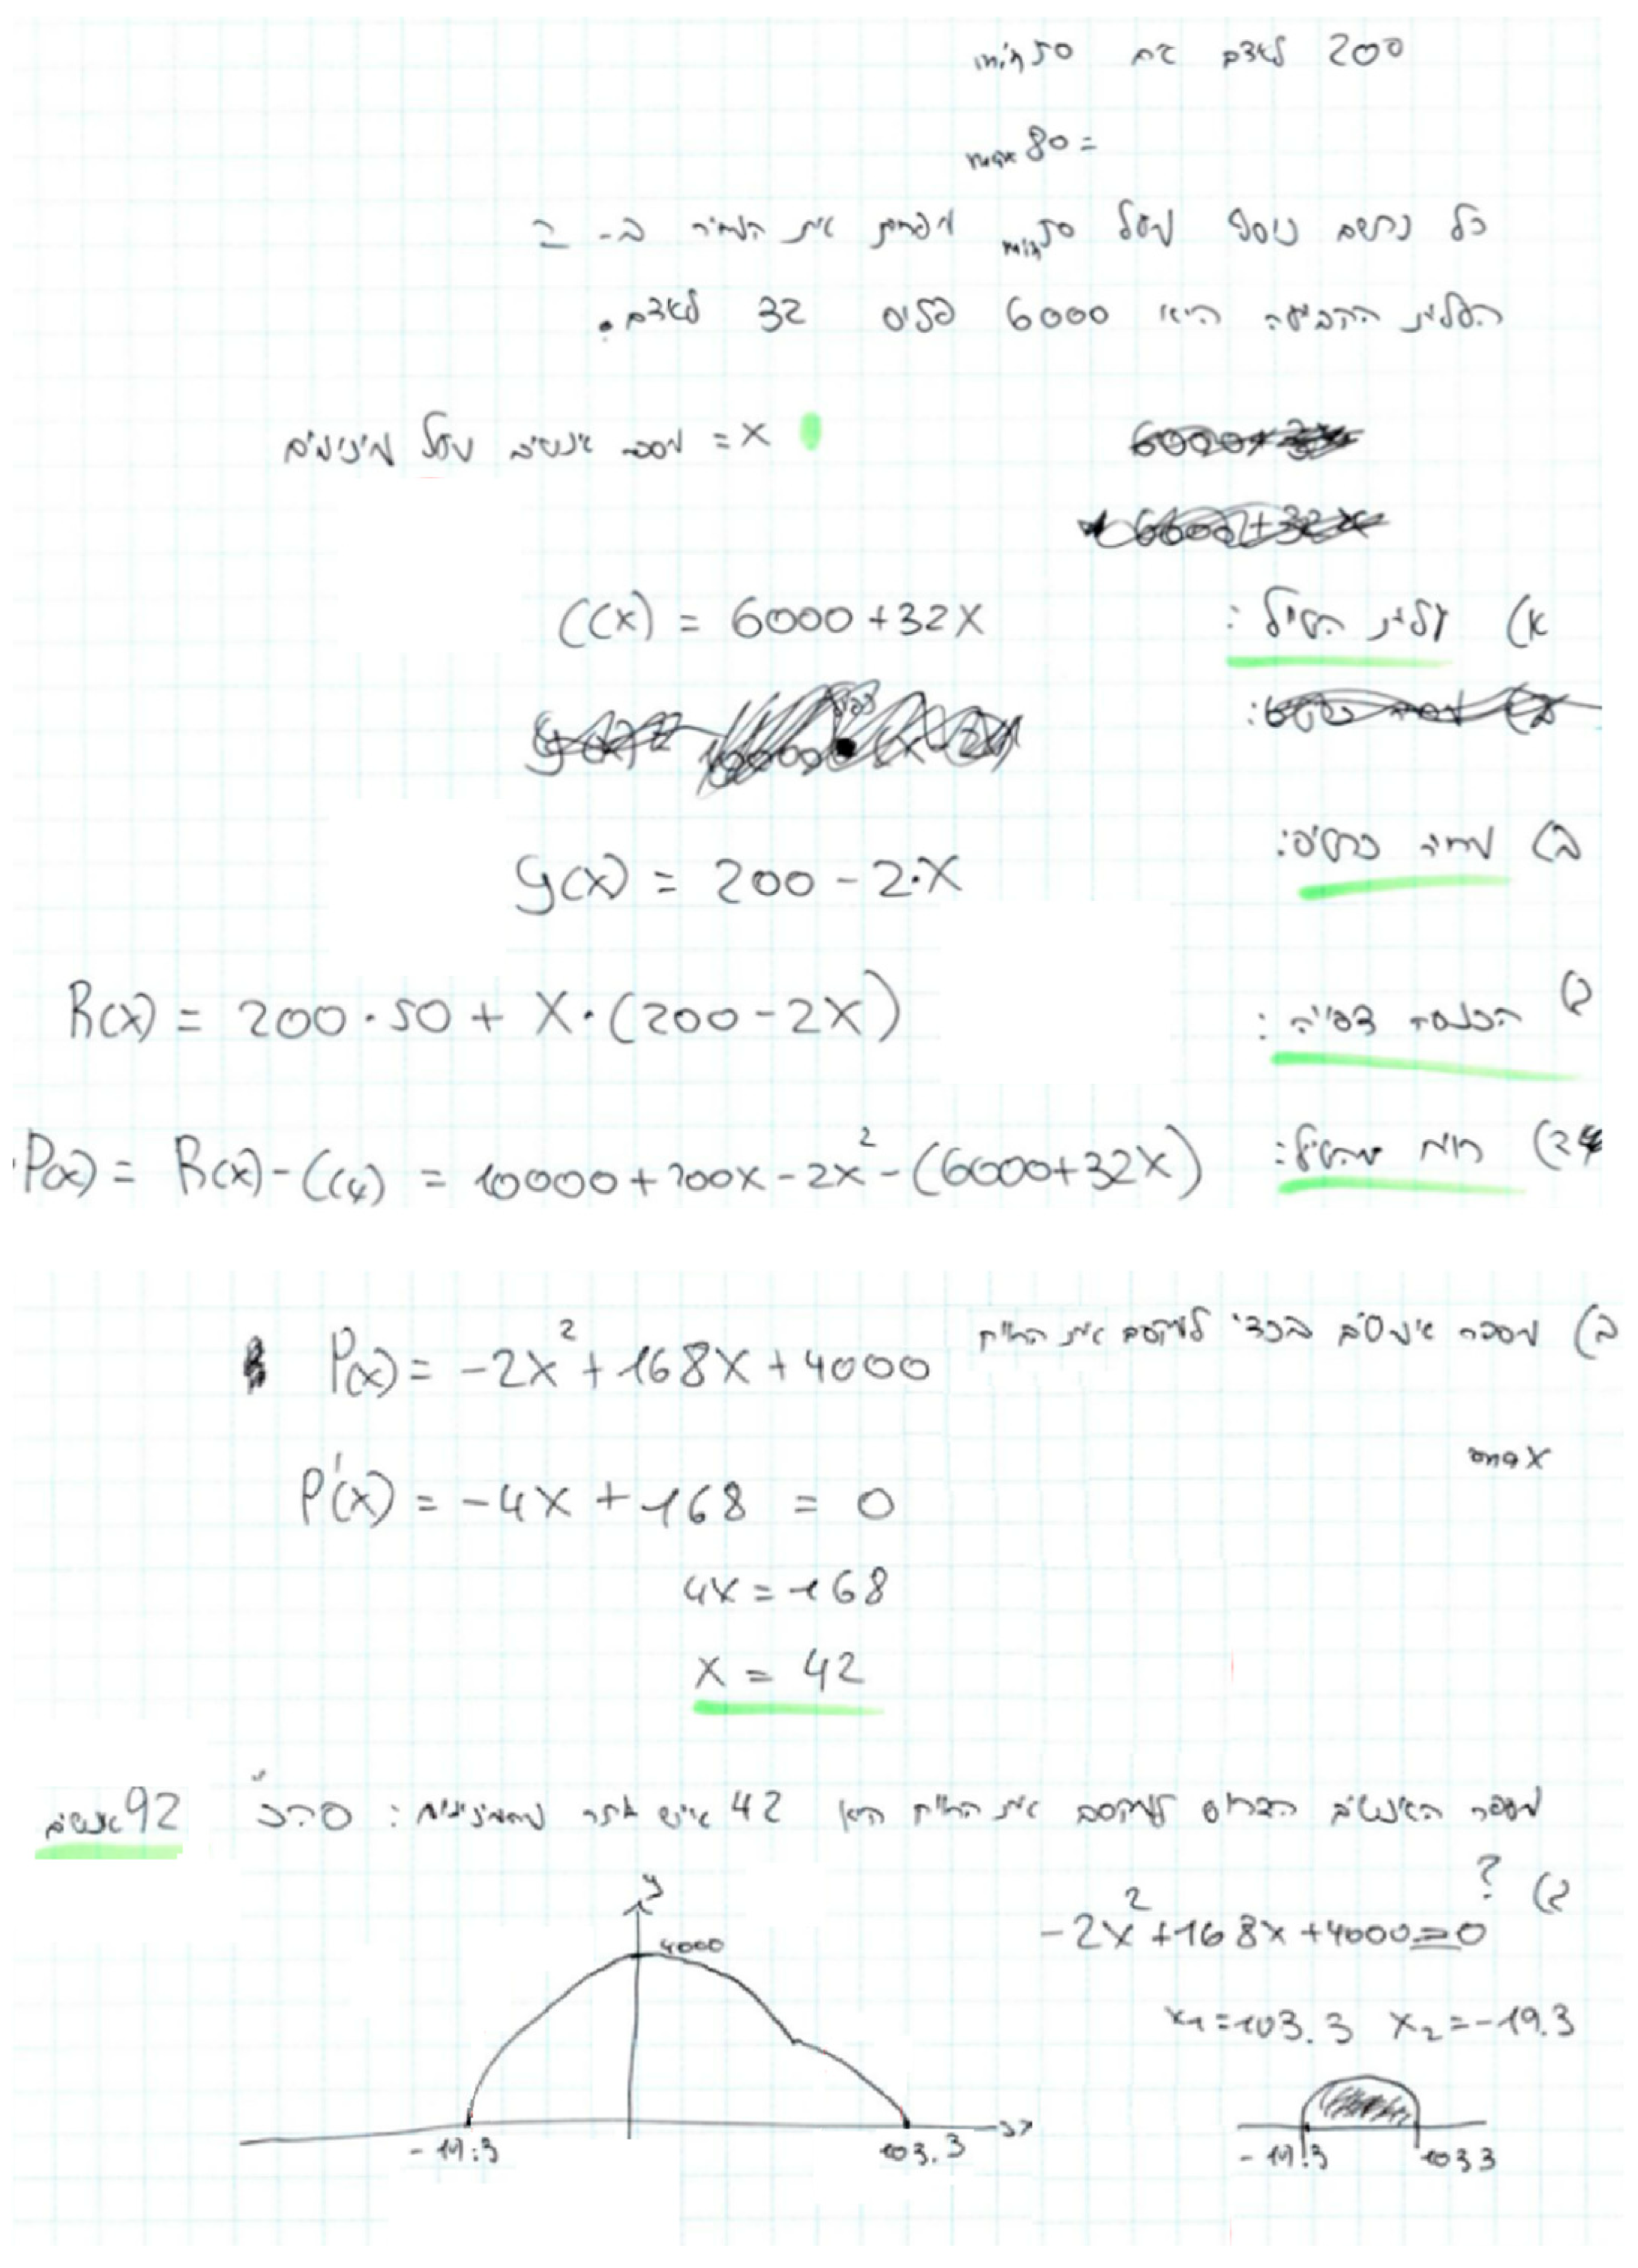 200 לאדם אם 50 min
= 80 max
כל נרשם נוסף מעל 50 min מפחית את המחיר ב- 2
העלות הקבועה היא 6000 פלוס 32 לאדם.
x = מספר אנשים מעל מינימום
א) עלות הטיול: C(x) = 6000 + 32x
ב) מחיר כרטיס:
g(x) = 200 - 2·x
ג) הכנסה צפויה: R(x) = 200·50 + x·(200 - 2x)
רווח מהטיול: P(x) = R(x) - C(x) = 10000 + 200x - 2x² - (6000 + 32x)
ב) מספר אנשים בכדי למקסם את הרווח
P(x) = -2x² + 168x + 4000
max
P'(x) = -4x + 168 = 0
4x = 168
x = 42
מספר האנשים הדרוש למקסם את הרווח הוא 42 איש יותר מהמינימום: סה"כ 92 אנשים
ג) ?
-2x² + 168x + 4000 = 0
x1 = 103.3 x2 = -19.3
y
4000
-19.3
103.3
x
-19.3
103.3